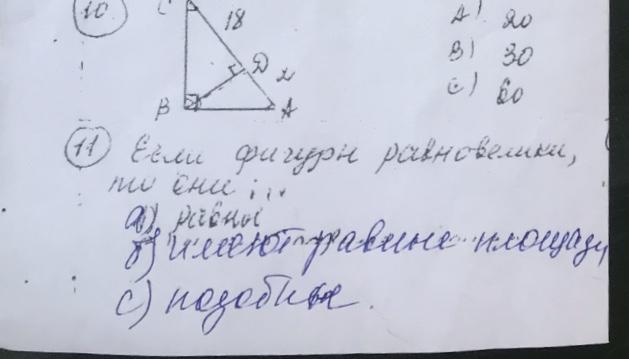 10.
C
18
D 2
B A
A) 20
B) 30
C) 60
11 Если фигуры равновелики,
то они ...
а) равны
б) имеют равные площади
с) подобные.